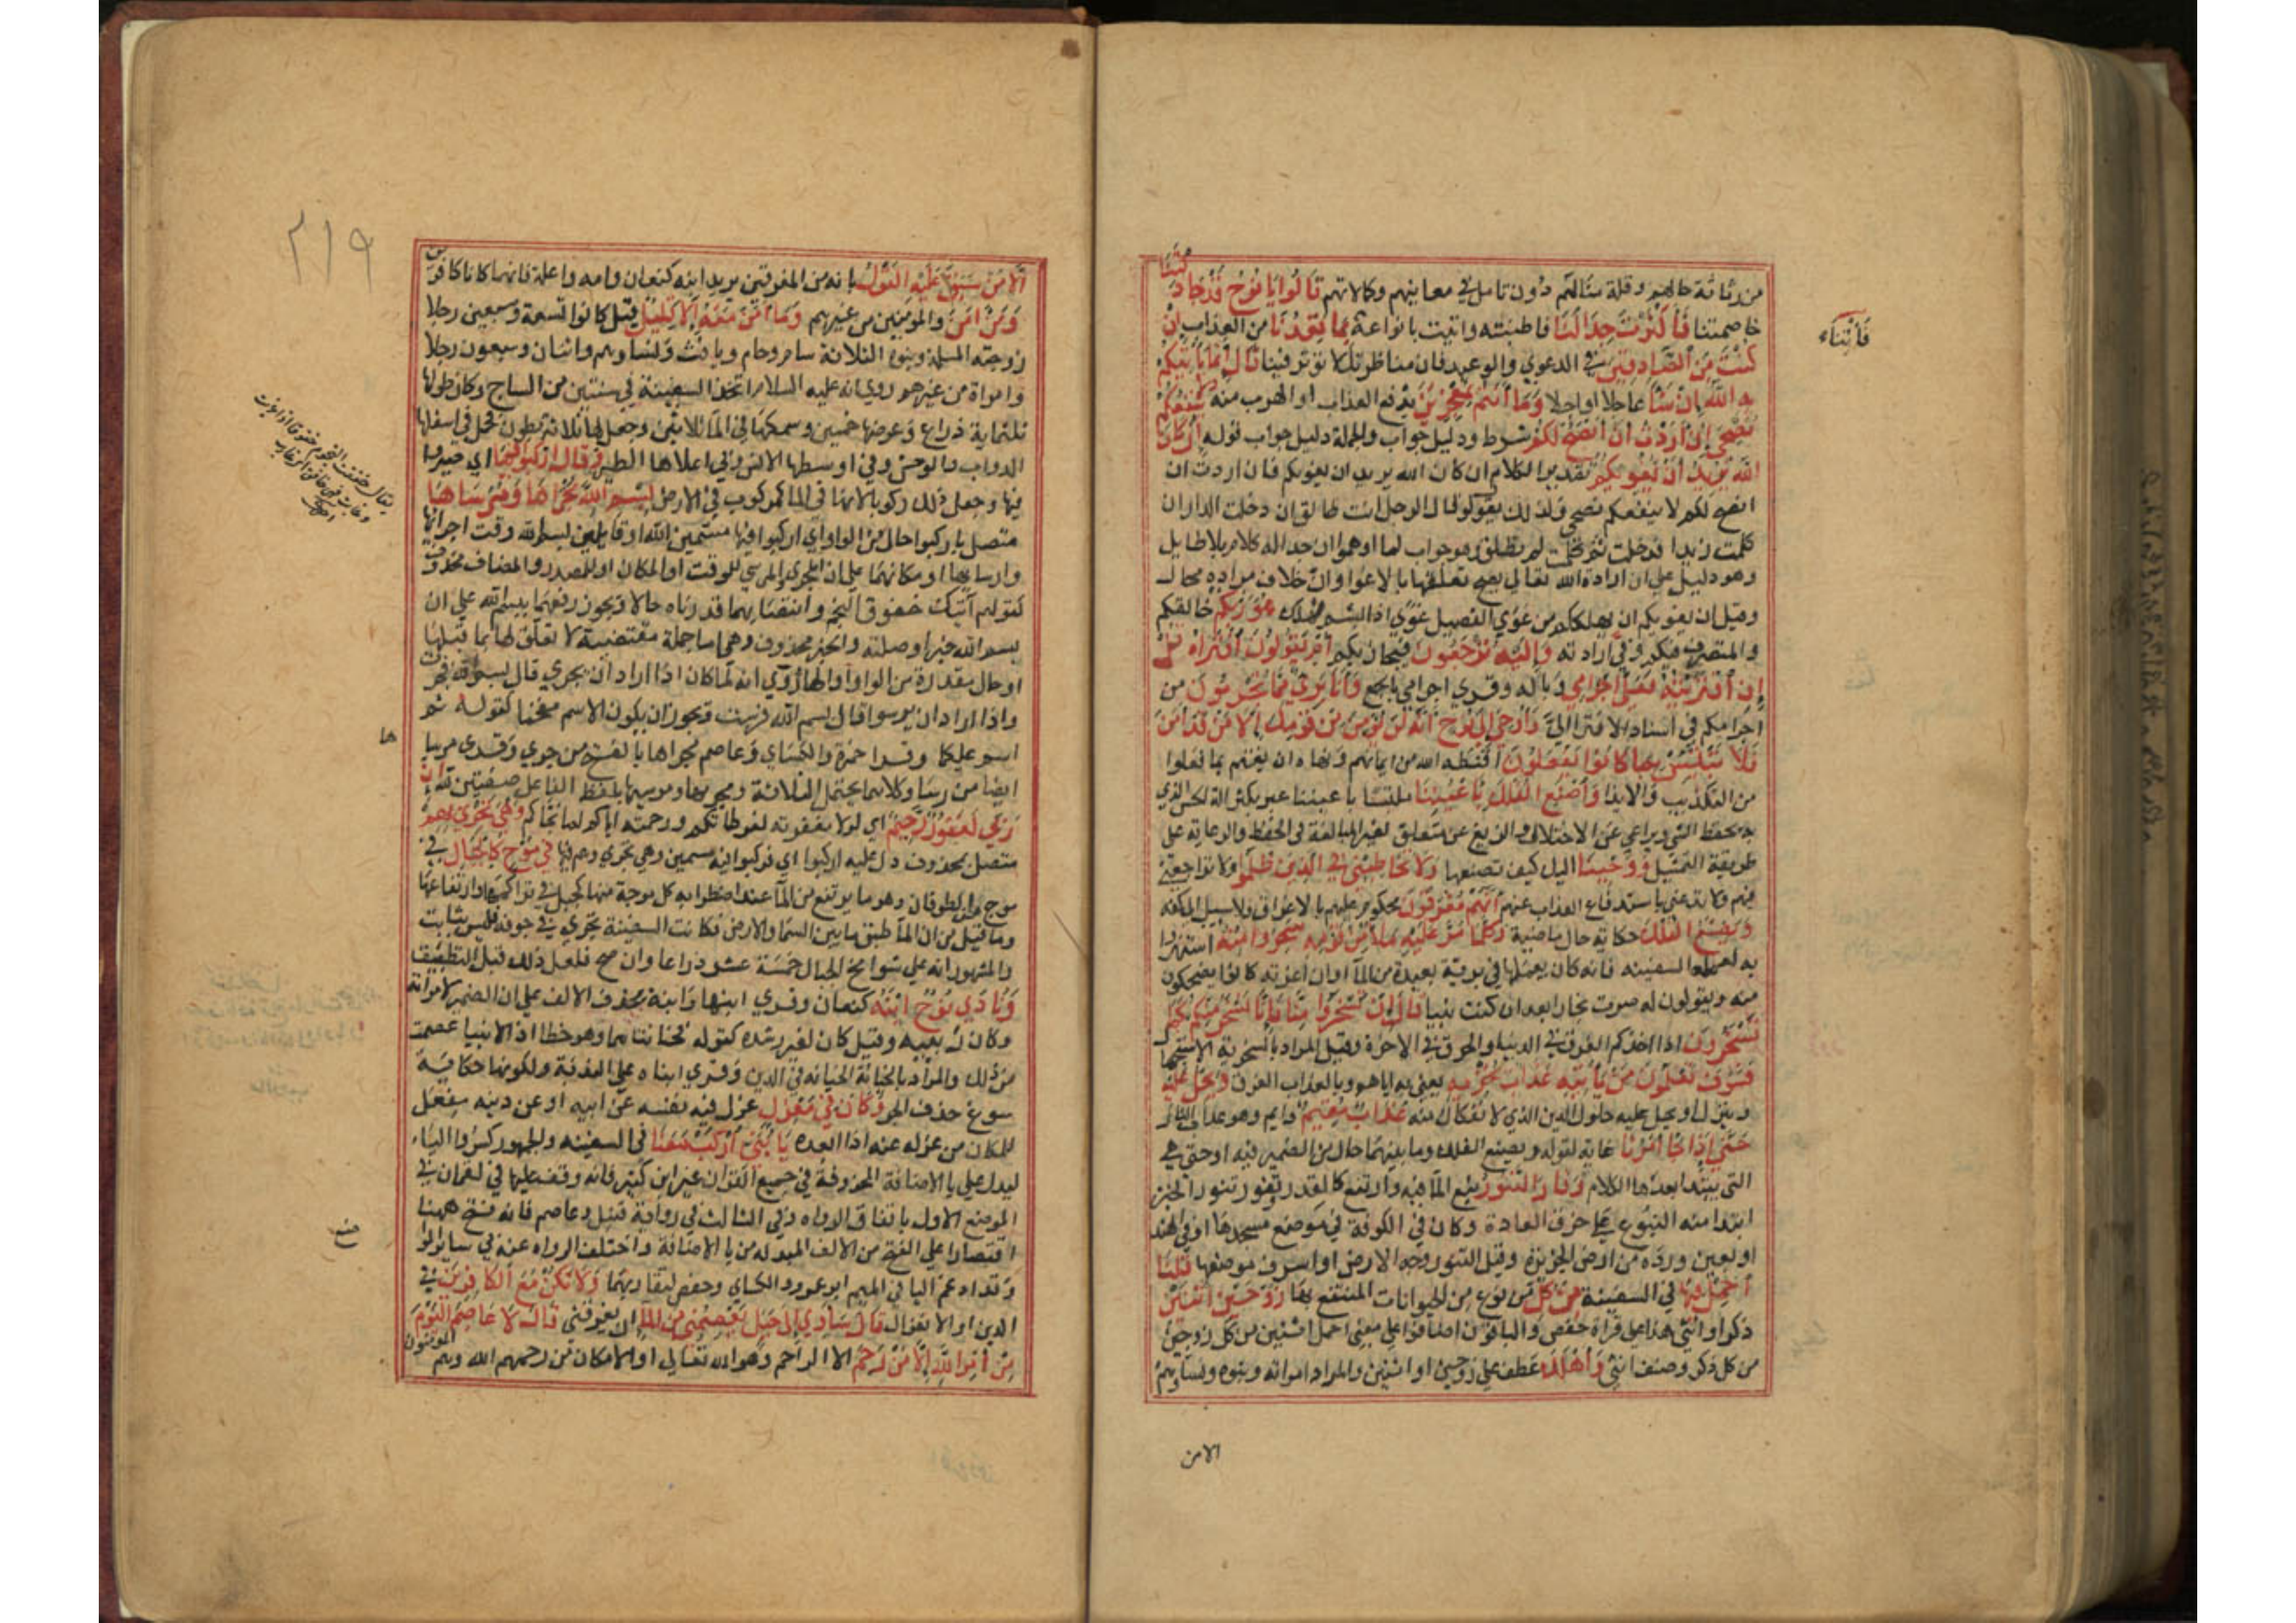 من رثاثة حالهم وقلة منالهم دون تامل في معانيهم وكمالاتهم قَالُوا يَا نُوحُ قَدْ جَادَلْتَنَا
خاصمتنا فَأَكْثَرْتَ جِدَالَنَا فاطنبته واتيت بانواعه بِمَا تَعِدُنَا من العذاب إِنْ
كُنْتَ مِنَ الصَّادِقِينَ في الدعوي والوعيد فان مناظرتك لا توثر فينا قَالَ إِنَّمَا يَأْتِيكُمْ
بِهِ اللَّهُ إِنْ شَاءَ عاجلا او اجلا وَمَا أَنْتُمْ بِمُعْجِزِينَ بدفع العذاب او الهرب منه وَلَا يَنْفَعُكُمْ
نُصْحِي إِنْ أَرَدْتُ أَنْ أَنْصَحَ لَكُمْ شرط ودليل جواب والجملة دليل جواب قوله إِنْ كَانَ
اللَّهُ يُرِيدُ أَنْ يُغْوِيَكُمْ تقدير الكلام ان كان الله يريد ان يغويكم فان اردت ان
انصح لكم لا ينفعكم نصحي ولذلك نقول لو قال الرجل انت طالق ان دخلت الدار ان
كلمت زيدا فدخلت ثم كلمت لم تطلق وهو جواب لما اوهموا ان جداله كلام بلا طايل
وهو دليل علي ان ارادة الله تعالي يصح تعلقها بالاغوا وان خلاف مراده محال
وقيل ان يغويكم ان يهلككم من غوي الفصيل غوي اذا بشم فهلك هُوَ رَبُّكُمْ خالقكم
والمتصرف فيكم وفق ارادته وَإِلَيْهِ تُرْجَعُونَ فيجازيكم أَمْ يَقُولُونَ افْتَرَاهُ قُلْ
إِنِ افْتَرَيْتُهُ فَعَلَيَّ إِجْرَامِي وباله وقري اجرامي بالجمع وَأَنَا بَرِيءٌ مِمَّا تُجْرِمُونَ من
اجرامكم في اسناد الافترا الي وَأُوحِيَ إِلَى نُوحٍ أَنَّهُ لَنْ يُؤْمِنَ مِنْ قَوْمِكَ إِلَّا مَنْ قَدْ آمَنَ
فَلَا تَبْتَئِسْ بِمَا كَانُوا يَفْعَلُونَ اقنطه الله من ايمانهم ونهاه ان يغتم بما فعلوا
من التكذيب والايذا وَاصْنَعِ الْفُلْكَ بِأَعْيُنِنَا ملتبسا باعيننا عبر بكثرة الة الحس الذي
به يحفظ الشي ويراعي عن الاختلال والزيغ عن المبالغة في الحفظ والرعاية علي
طريقة التمثيل وَوَحْيِنَا اليك كيف تصنعها وَلَا تُخَاطِبْنِي فِي الَّذِينَ ظَلَمُوا ولا تراجعني
فيهم ولا تدعني باستدفاع العذاب عنهم إِنَّهُمْ مُغْرَقُونَ محكوم عليهم بالاغراق فلا سبيل الي كفه
وَيَصْنَعُ الْفُلْكَ حكاية حال ماضية وَكُلَّمَا مَرَّ عَلَيْهِ مَلَأٌ مِنْ قَوْمِهِ سَخِرُوا مِنْهُ استهزوا
به لعمله السفينه فانه كان يعملها في برية بعيدة من الما اوان عزته كانوا يضحكون
منه ويقولون له صرت نجارا بعد ان كنت نبيا قَالَ إِنْ تَسْخَرُوا مِنَّا فَإِنَّا نَسْخَرُ مِنْكُمْ كَمَا
تَسْخَرُونَ اذا اخذكم الغرق في الدنيا والحرق في الاخرة وقيل المراد بالسخرية الاستجهال
فَسَوْفَ تَعْلَمُونَ مَنْ يَأْتِيهِ عَذَابٌ يُخْزِيهِ يعني به اياهم وبالعذاب الغرق وَيَحِلُّ عَلَيْهِ
وينزل او يحل عليه حلول الدين الذي لا انفكاك عنه عَذَابٌ مُقِيمٌ دايم وهو عذاب النار
حَتَّى إِذَا جَاءَ أَمْرُنَا غاية لقوله ويصنع الفلك وما بينهما حال من الضمير فيه او حتي هي
التي يبتدا بعدها الكلام وَفَارَ التَّنُّورُ نبع الما فيه وارتفع كالقدر تفور وتنور الخبز
ابتدا منه النبوع علي خرق العادة وكان في الكوفة في موضع مسجدها او في الهند
او بعين وردة من ارض الجزيرة وقيل التنور وجه الارض او اشرف موضعها قُلْنَا
احْمِلْ فِيهَا في السفينة مِنْ كُلٍّ من نوع من الحيوانات المنتفع بها زَوْجَيْنِ اثْنَيْنِ
ذكرا وانثي هذا علي قراة حفص والباقون اضافوا علي معني احمل اثنين من كل زوجين
من كل ذكر وصنف انثي وَأَهْلَكَ عطف علي زوجين او اثنين والمراد امراته وبنوه ونساوهم
فَأْتِنَا
الامن
٢١٩
إِلَّا مَنْ سَبَقَ عَلَيْهِ الْقَوْلُ بانه من المغرقين يريد ابنه كنعان وامه واعلة فانهما كانا كافرين
وَمَنْ آمَنَ والمومنين من غيرهم وَمَا آمَنَ مَعَهُ إِلَّا قَلِيلٌ قيل كانوا تسعة وسبعين رجلا
زوجته المسلمة وبنوه الثلاثة سام وحام ويافث ونساوهم واثنان وسبعون رجلا
وامراة من غيرهم روي انه عليه السلام اتخذ السفينة في سنتين من الساج وكان طولها
ثلثماية ذراع وعرضها خمسين وسمكها في الما ثلاثين وجعل لها ثلاثة بطون فحمل في اسفلها
الدواب والوحش وفي اوسطها الانس وفي اعلاها الطير وَقَالَ ارْكَبُوا فِيهَا اي صيروا
فيها وجعل ذلك ركوبا لانها في الما كمركوب في الارض بِسْمِ اللَّهِ مَجْرَاهَا وَمُرْسَاهَا
متصل باركبوا حال من الواو اي اركبوا فيها مسمين الله او قايلين بسم الله وقت اجرائها
وارسايها او مكانهما علي ان المجري والمرسي للوقت او المكان او للمصدر والمضاف محذوف
كقولهم اتيك خفوق النجم وانتصابهما بما قدرناه حالا ويجوز رفعهما ببسم الله علي ان
بسم الله خبر او صلته والخبر محذوف وهي اما جملة مقتضبة لا تعلق لها بما قبلها
او حال مقدرة من الواو او الها روي انه لما كان اذا اراد ان تجري قال بسم الله فجرت
واذا اراد ان ترسوا قال بسم الله فرست ويجوز ان يكون الاسم مقحما كقوله ثم
اسم عليكما وقرا حمزة والكساي وعاصم مجراها بالفتح من جري وقري مرسا
ايضا من رسا وكلاهما يحتمل الثلاثة ومجريها ومرسيها بلفظ الفاعل صفتين لله إِنَّ
رَبِّي لَغَفُورٌ رَحِيمٌ اي لولا مغفرته لفرطاتكم ورحمته اياكم لما نجاكم وَهِيَ تَجْرِي بِهِمْ
متصل بمحذوف دل عليه اركبوا اي فركبوا فيه مسمين وهي تجري وهم فيها فِي مَوْجٍ كَالْجِبَالِ في
موج من الطوفان وهو ما يرتفع من الما عند اضطرابه كل موجة منها كجبل في تراكمها وارتفاعها
وما قيل من ان الما طبق ما بين السما والارض وكانت السفينة تجري في جوفه فليس بثابت
والمشهور انه علي شوامخ الجبال خمسة عشر ذراعا وان صح فلعل ذلك قبل التطبيق
وَنَادَى نُوحٌ ابْنَهُ كنعان وقري ابنها وابنه بحذف الالف علي ان الضمير لامراته
وكان ربيبه وقيل كان لغير رشده كقوله فخانتاهما وهو خطا اذ الانبيا عصمت
من ذلك والمراد بالخيانة الخيانه في الدين وقري ابناه علي الندبة ولكونها حكاية
سوغ حذف الحرف وَكَانَ فِي مَعْزِلٍ عزل فيه نفسه عن ابيه او عن دينه مفعل
للمكان من عزله عنه اذا ابعده يَا بُنَيَّ ارْكَبْ مَعَنَا في السفينه والجمهور كسروا الياء
ليدل علي يا الاضافة المحذوفة في جميع القران غير ابن كثير فانه وقف عليها في لقمان في
الموضع الاول باتفاق الرواه وفي الثالث في رواية قنبل وعاصم فانه فتح ههنا
اقتصارا علي الفتح من الالف المبدله من يا الاضافة واختلف الرواه عنه في ساير المواضع
وقد ادغم اليا في الميم ابو عمرو والكساي وحفص لتقاربهما وَلَا تَكُنْ مَعَ الْكَافِرِينَ في
الدين او الانعزال قَالَ سَآوِي إِلَى جَبَلٍ يَعْصِمُنِي مِنَ الْمَاءِ ان يغرقني قَالَ لَا عَاصِمَ الْيَوْمَ
مِنْ أَمْرِ اللَّهِ إِلَّا مَنْ رَحِمَ الا الراحم وهو الله تعالي او الا مكان من رحمهم الله وهم المومنون
يقال خفقت النجوم خفوقا اذا غابت
ها